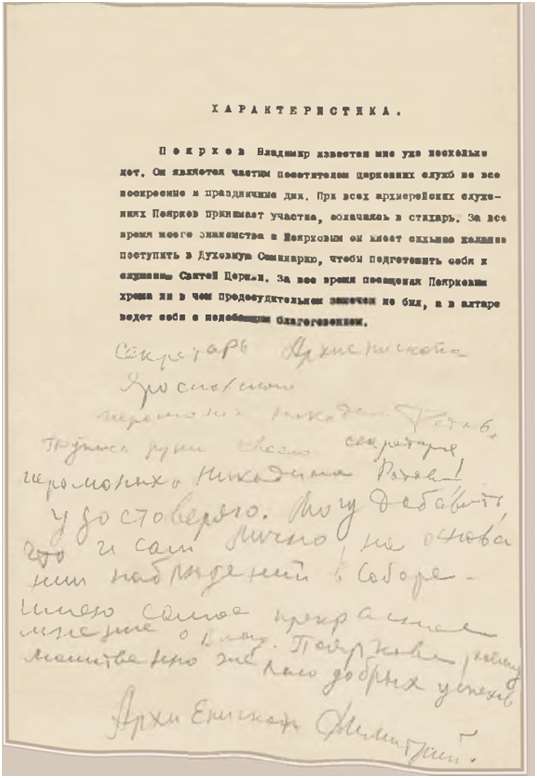 ХАРАКТЕРИСТИКА.
Поярков Владимир известен мне уже несколько
лет. Он является частым посетителем церковных служб во все
воскресные и праздничные дни. При всех архиерейских служе-
ниях Поярков принимает участие, облачаясь в стихарь. За все
время моего знакомства с Поярковым он имеет сильное желание
поступить в Духовную Семинарию, чтобы подготовить себя к
служению Святой Церкви. За все время посещения Поярковым
храма ни в чем предосудительном замечен не был, а в алтаре
ведет себя с подобающим благоговением.
Секретарь Архиепископа
Ярославского
иеромонах Никодим Ротов.
руки своего секретаря
иеромонаха Никодима Ротова
удостоверяю. Могу добавить
что и сам лично, на основа
нии наблюдений в Соборе -
имею самое прекрасное
мнение о Влад. Пояркове,
молитвенно желаю добрых успехов
Архиепископ Димитрий.